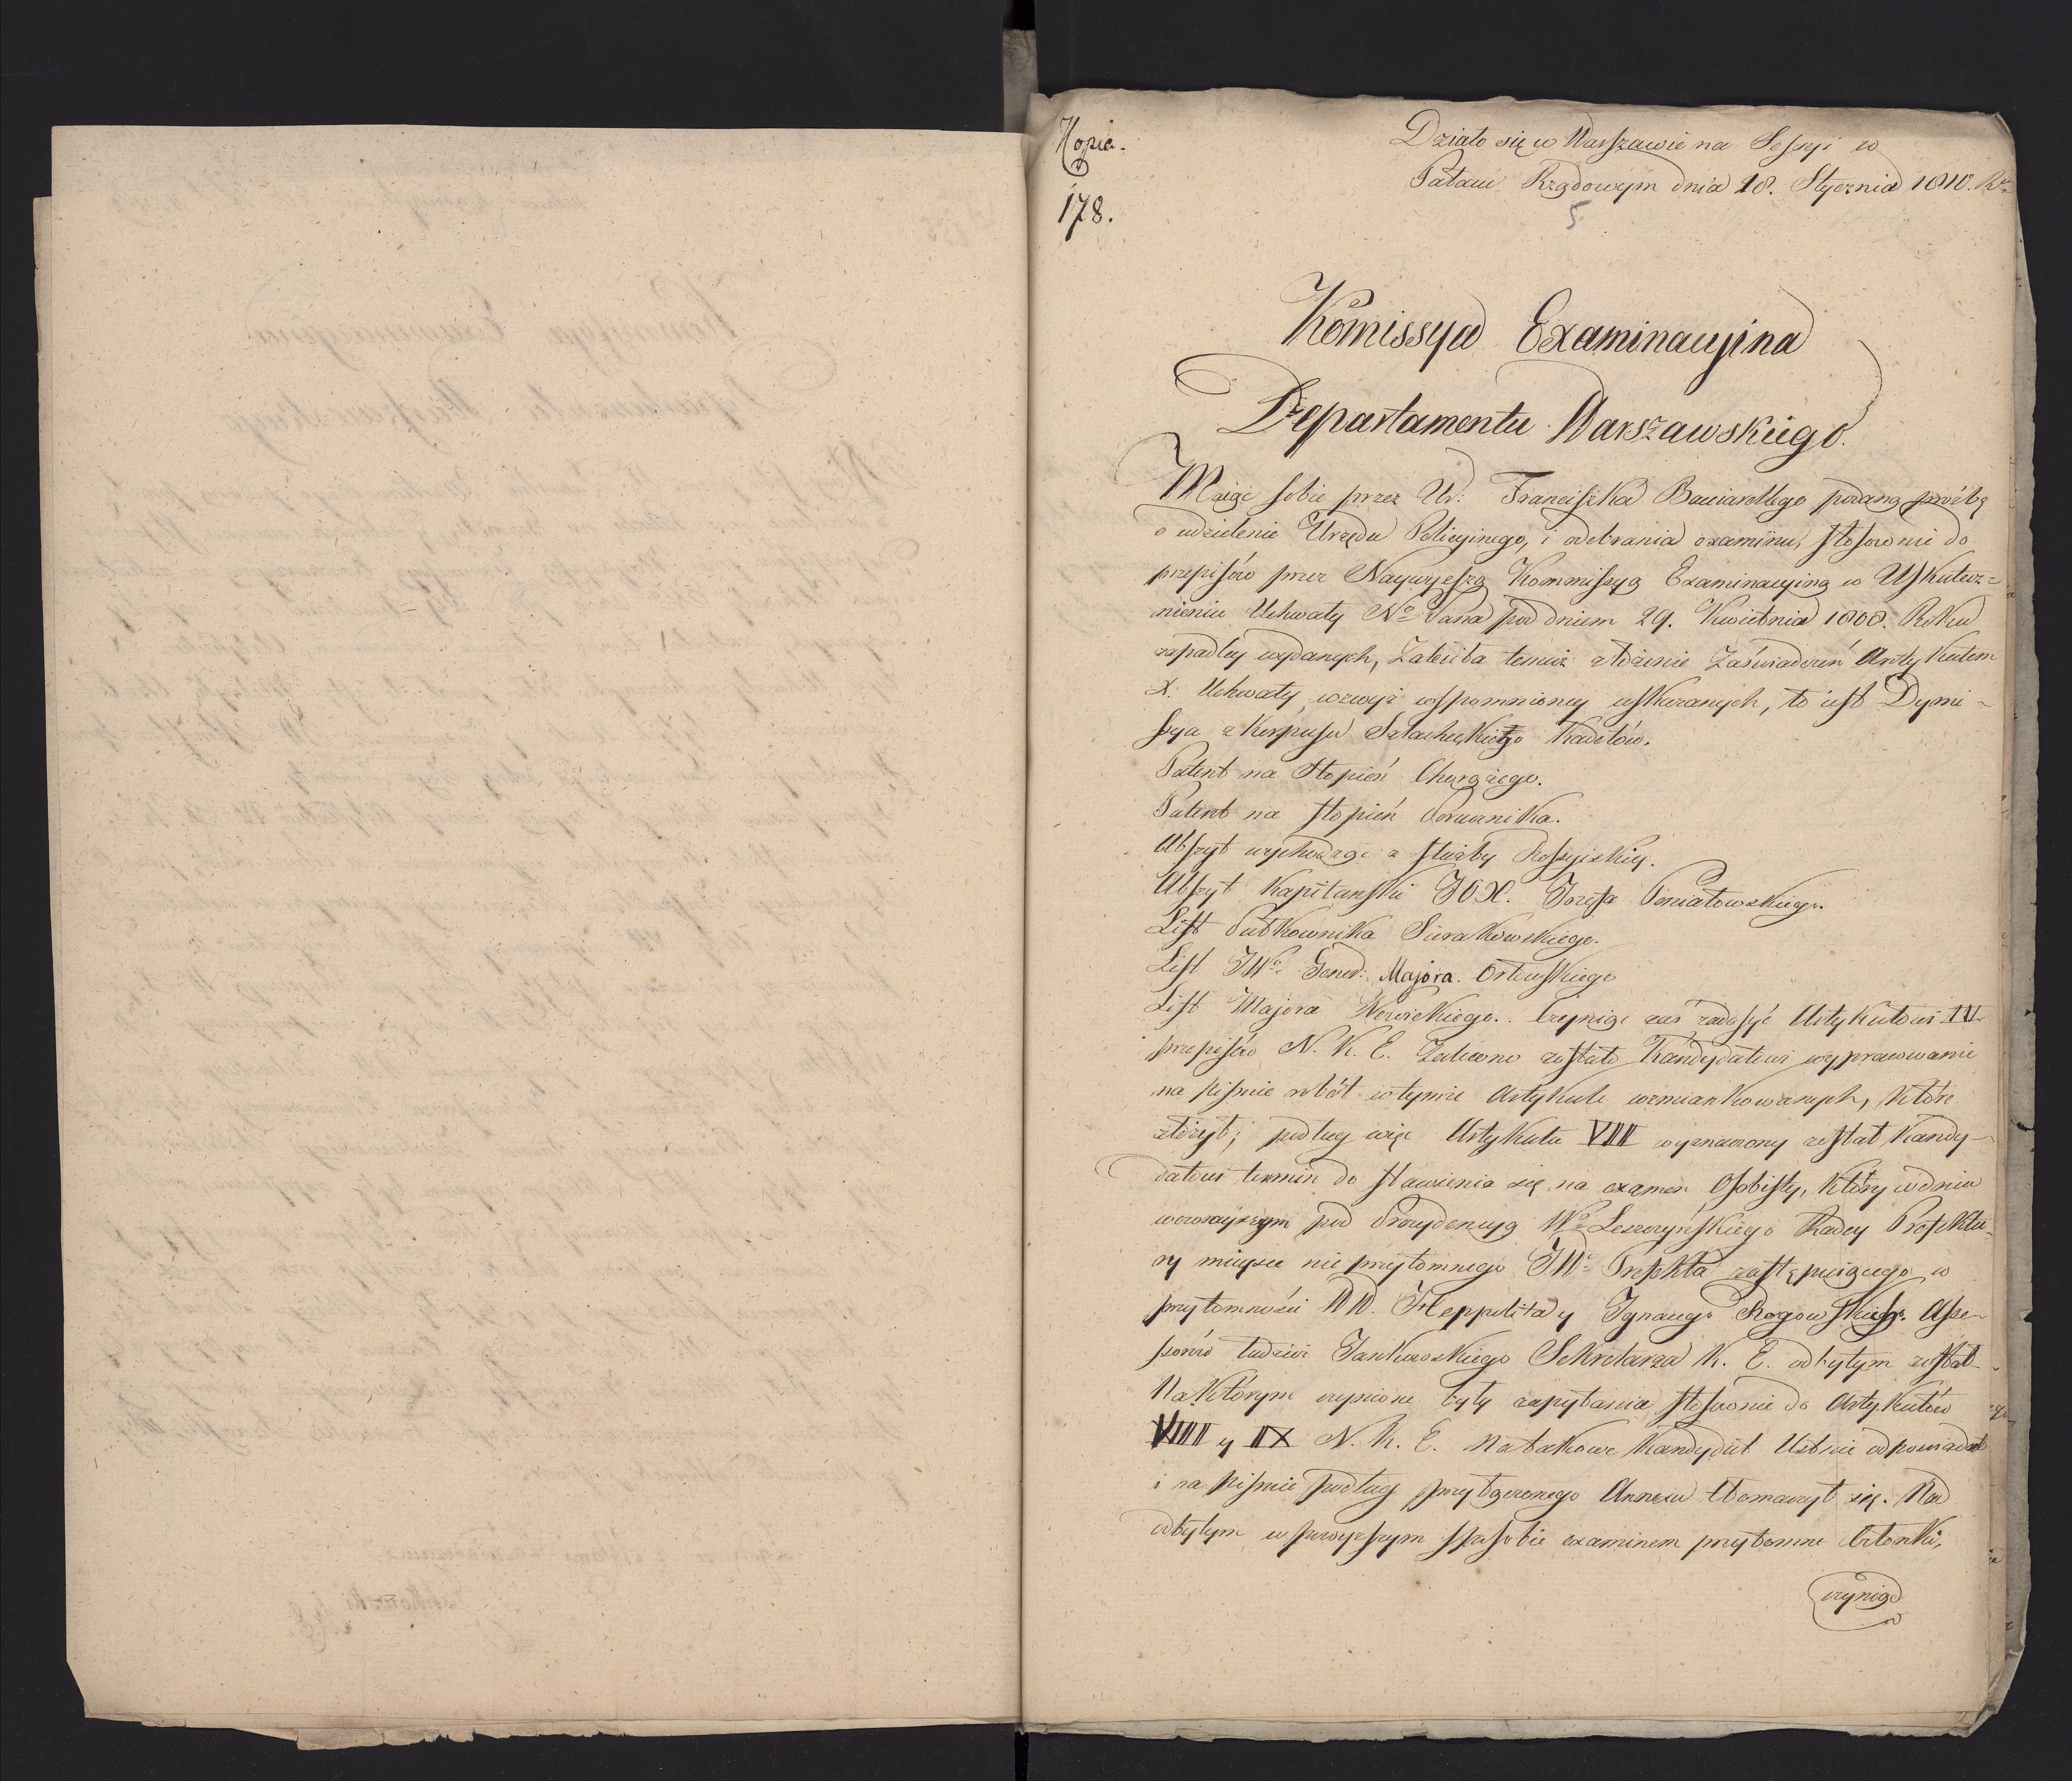 Kopia.
178.
Działo się w Warszawie na Sessyi w
Pałacu Rządowym dnia 18. Stycznia 1810. Rº
5
Kommissya Examinacyjna
Departamentu Warszawskiego.
Maiąc sobie przez Ur: Franciszka podaną prośbę
o udzielenie Urzędu Policyjnego, i odebrania examinu, stosownie do
przepisów przez Naywyższą Kommissyą Examinacyiną w Uskutecz=
nieniu Uchwały Nº Pana pod dniem 29. Kwietnia 1808. Roku
zapadłey wydanych, Zaleciła temuż złożenie Zaświadczeń Artykułem
X. Uchwały wzwyż wspomnioney wskazanych, to iest Dymi-
ssya z Korpusu Szlacheckiego Kadetów.
Patent na Stopień Chorążego.
Patent na stopień Porucznika.
Abszyt wychodząc z służby Rossyiskiey.
Abszyt Kapitański JOX. Jozefa Poniatowskiego.
List Pułkownika Sierakowskiego.
List JWº Gener: Majora.
List Majora Nowickiego. Czyniąc zaś zadosyć Artykułowi IV
przepisów N. K. E. Zalecono zostało Kandydatowi wypracowanie
na piśmie robót w tymże Artykule wzmiankowanych, które
złożył; podług więc Artykułu VIII wyznaczony został Kandy-
datowi termin do stawienia się na examen Osobisty, który w dniu
wczorayszym pod Prezydencyą Wº Leszczyńskiego Radcy Prefektu-
ry mieysce nie przytomnego JWº Prefekta zastępuiącego w
przytomności WW. Heppolita y Ignacego Rogowskich Asse-
ssorów tudzież Jankowskiego Sekretarza K. E. odbytym został
Na którym czynione były zapytania stosownie do Artykułów
VIII y IX N. K. E. Na takowe Kandydat Ustnie odpowiadał
i na piśmie podług przyłączonego Annexu tłomaczył się. Po
odbytym w powyższym sposobie examinem przytomne Członki,
czyniąc